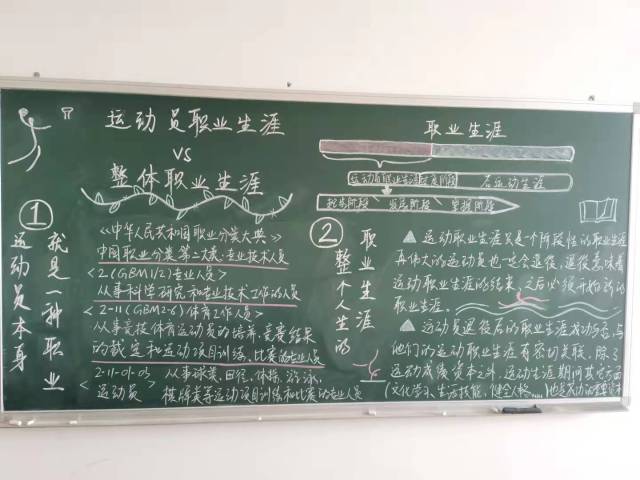 运动员职业生涯
VS
整体职业生涯
①
运动员本身
我是一种职业
《中华人民共和国职业分类大典》
中国职业分类第二大类：专业技术人员
<2(GBM1/2)专业人员>
从事科学研究和专业技术工作的人员
<2-11(GBM2-6)体育工作人员>
从事竞技体育运动员的培养，竞赛结果
的裁定和运动项目训练、比赛的专业人员
<2-11-01-03
运动员>
从事球类、田径、体操、游泳、
棋牌类等运动项目训练和比赛的专业人员
职业生涯
运动员职业生涯
后运动生涯
发展阶段
②
整个人生的
职业生涯
运动职业生涯只是一个阶段性的职业生涯
再伟大的运动员也一定会退役，退役意味着
运动职业生涯的结束，之后必须开始新的
职业生涯。
运动员退役后的职业生涯成功与否，与
他们的运动职业生涯有密切关联。除了
运动成绩资本之外，运动生涯期间其它方面
(文化学习、生活技能、健全人格……)也是成功的重要资本